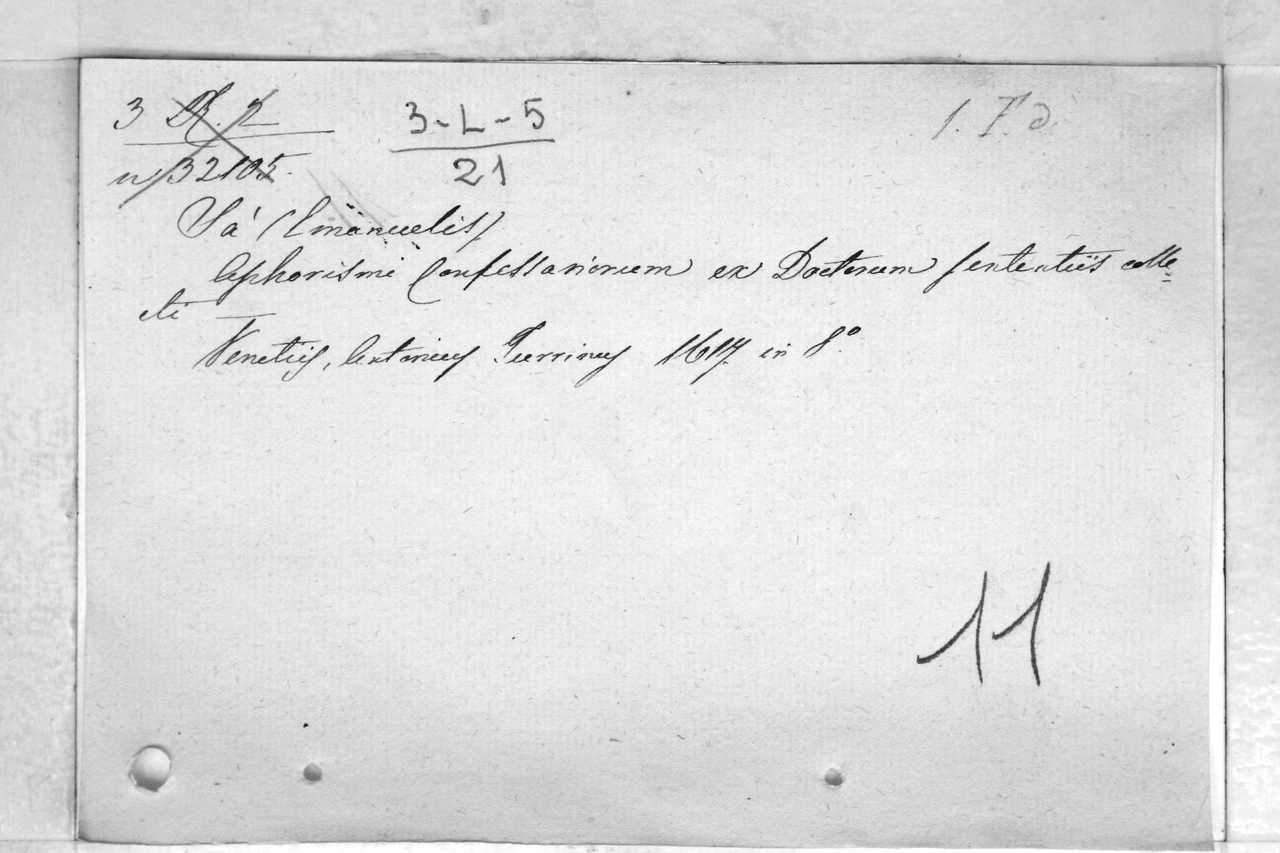 3
3-L-5
21
n 32105
Sá (Emanuelis)
Aphorismi Confessariorum ex Doctorum sententiis colle=
cti
Venetiis, Antonius Turrinus 1617 in 8º
11